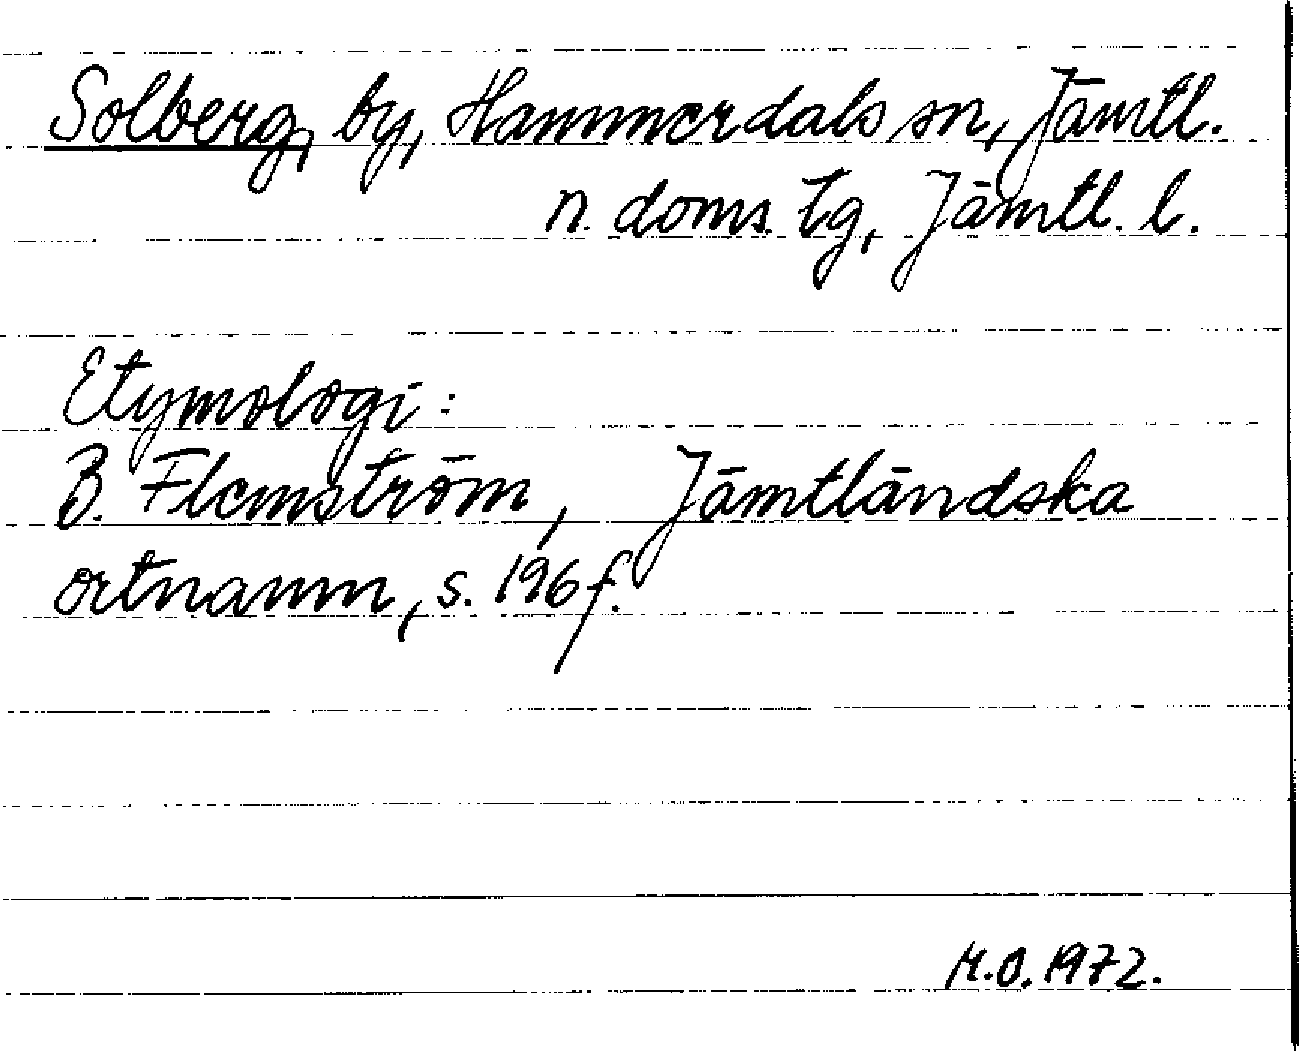 Solberg, by, Hammerdals sn, Jämtl.
n. doms. tg, Jämtl. l.
Etymologi:
B. Flemström, Jämtländska
ortnamn, s. 196 f.
M.O. 1972.